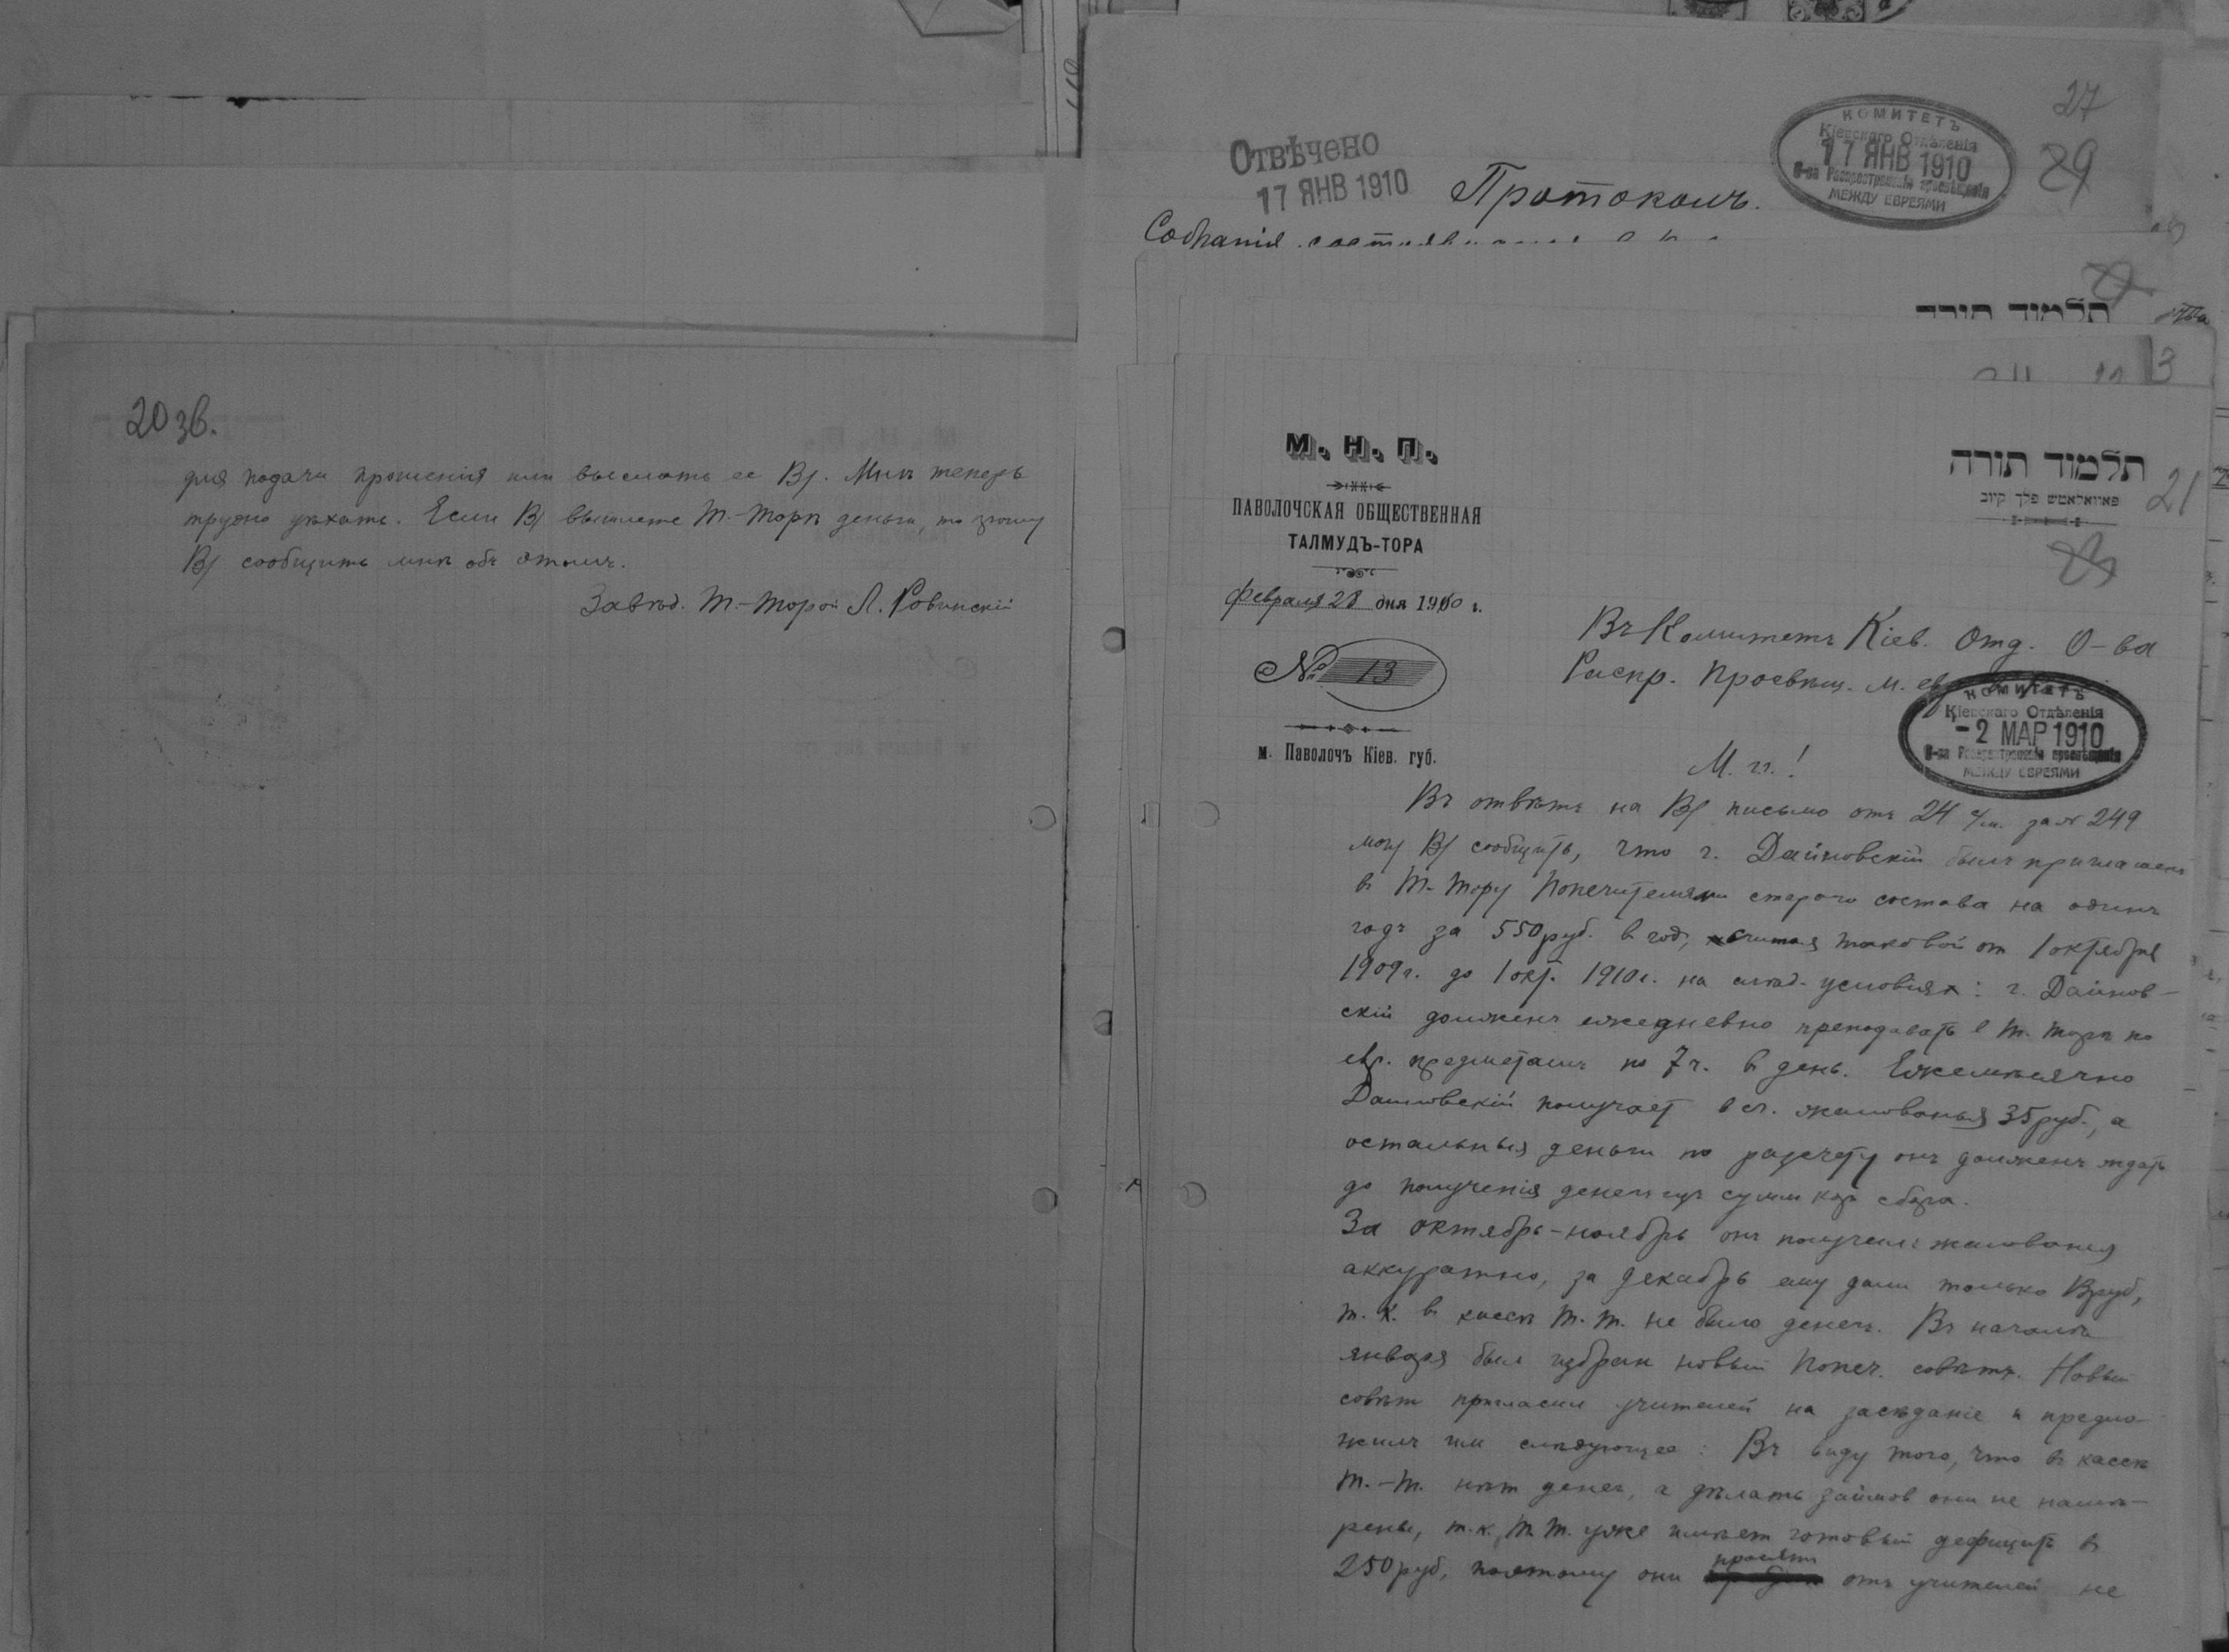 20 зв.
для подачи прошенія или выслать ее Вы. Мнѣ теперь
трудно уѣхать. Если Вы вышлете Т.-Торѣ деньги, то прошу
Вы сообщить мнѣ объ этомъ.
Завѣд. Т.-Торой Л. Ровинскій
27
29
Отвѣчено
17 ЯНВ 1910
Протоколъ.
КОМИТЕТЪ
Кіевскаго Отдѣленія
17 ЯНВ 1910
О-ва Распространенія просвѣщенія
МЕЖДУ ЕВРЕЯМИ
Собранія
תלמוד תורה
3
М. Н. П.
ПАВОЛОЧСКАЯ ОБЩЕСТВЕННАЯ
ТАЛМУДЪ-ТОРА
Февраля 28 дня 1910 г.
№ 13
м. Паволочъ Кіев. губ.
תלמוד תורה
פאוואלאטש פלך קיוב
21
Въ Комитетъ Кіев. Отд. О-ва
Распр. Просвѣщ. м. евр.
КОМИТЕТЪ
Кіевскаго Отдѣленія
- 2 МАР 1910
О-ва Распространенія просвѣщенія
МЕЖДУ ЕВРЕЯМИ
М. гг.!
Въ отвѣтъ на Вы письмо отъ 24 с/м. за № 249
могу Вы сообщить, что г. Дайновскій былъ приглашенъ
в Т-Тору Попечителями стараго состава на одинъ
годъ за 550 руб. в год, считая таковой от 1 октября
1909 г. до 1 окт. 1910 г. на слѣд. условіях: г. Дайнов-
скій долженъ ежедневно преподавать в Т. Торѣ по
евр. предметамъ по 7 ч. в день. Ежемѣсячно
Дайновскій получает в сч. жалованья 35 руб., а
остальныя деньги по разсчету онъ долженъ ждать
до полученія денегъ изъ сумм кор. сбора.
За октябрь-ноябрь онъ получилъ жалованья
аккуратно, за декабрь ему дали только руб,
т. к. в кассѣ Т. Т. не было денегъ. Въ началѣ
января был избран новый Попеч. совѣтъ. Новый
совѣт пригласил учителей на засѣданіе и предло-
жилъ им слѣдующее: Въ виду того, что въ кассѣ
Т.-Т. нѣт денег, а дѣлать займов они не намѣ-
рены, т. к. Т. Т. уже имѣет готовый дефицитъ в
250 руб, поэтому они просятъ отъ учителей не